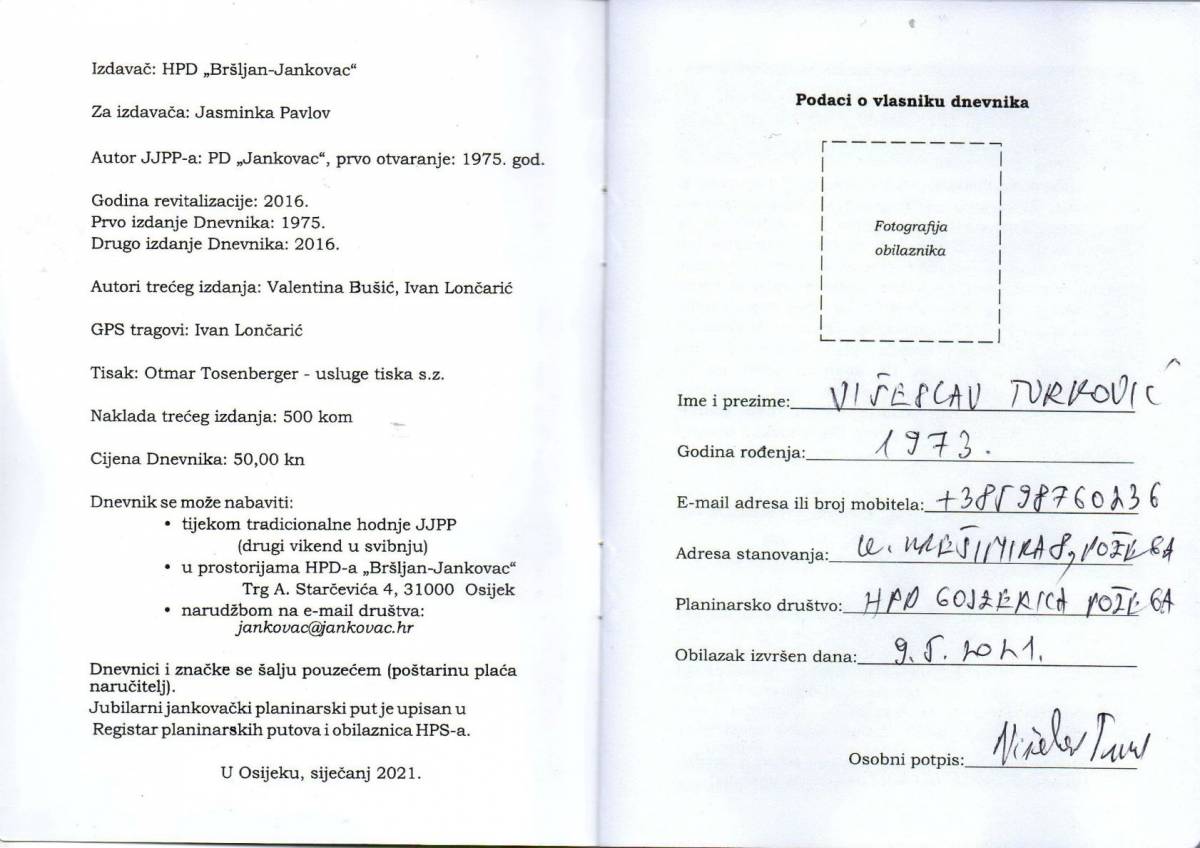 Izdavač: HPD „Bršljan-Jankovac“
Za izdavača: Jasminka Pavlov
Autor JJPP-a: PD „Jankovac“, prvo otvaranje: 1975. god.
Godina revitalizacije: 2016.
Prvo izdanje Dnevnika: 1975.
Drugo izdanje Dnevnika: 2016.
Autori trećeg izdanja: Valentina Bušić, Ivan Lončarić
GPS tragovi: Ivan Lončarić
Tisak: Otmar Tosenberger - usluge tiska s.z.
Naklada trećeg izdanja: 500 kom
Cijena Dnevnika: 50,00 kn
Dnevnik se može nabaviti:
• tijekom tradicionalne hodnje JJPP
(drugi vikend u svibnju)
• u prostorijama HPD-a „Bršljan-Jankovac“
Trg A. Starčevića 4, 31000 Osijek
• narudžbom na e-mail društva:
jankovac@jankovac.hr
Dnevnici i značke se šalju pouzećem (poštarinu plaća
naručitelj).
Jubilarni jankovački planinarski put je upisan u
Registar planinarskih putova i obilaznica HPS-a.
U Osijeku, siječanj 2021.
Podaci o vlasniku dnevnika
Fotografija
obilaznika
Ime i prezime: VIŠESLAV TURKOVIĆ
Godina rođenja: 1973.
E-mail adresa ili broj mobitela: +38598760236
Adresa stanovanja: K. KREŠIMIRA 8, POŽEGA
Planinarsko društvo: HPD GOJZERICA POŽEGA
Obilazak izvršen dana: 9.5.2021.
Osobni potpis: